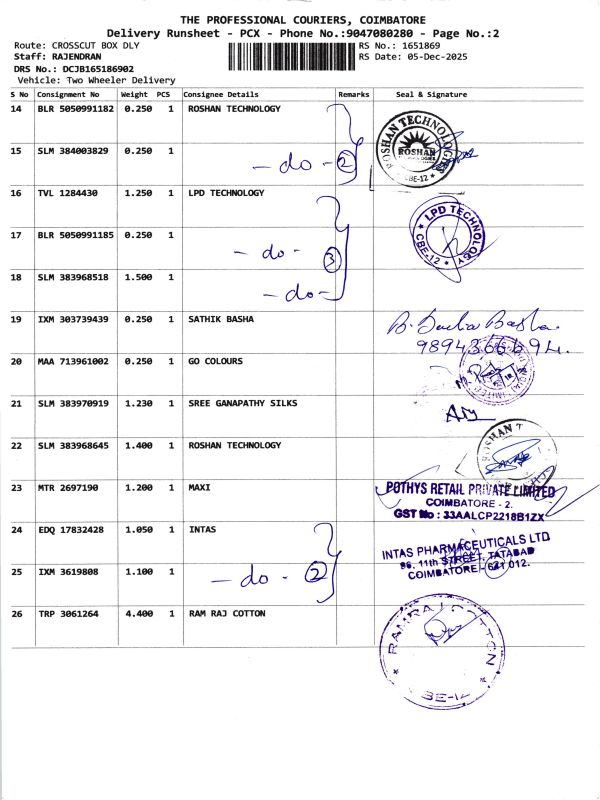 THE PROFESSIONAL COURIERS, COIMBATORE
Delivery Runsheet - PCX - Phone No.:9047080280 - Page No.:2
Route: CROSSCUT BOX DLY RS No.: 1651869
Staff: RAJENDRAN RS Date: 05-Dec-2025
DRS No.: DCJB165186902
Vehicle: Two Wheeler Delivery
S No Consignment No Weight PCS Consignee Details Remarks Seal & Signature
14 BLR 5050991182 0.250 1 ROSHAN TECHNOLOGY
ROSHAN TECHNOLOGIES
ROSHAN
CBE-12
15 SLM 384003829 0.250 1
- do - 2
16 TVL 1284430 1.250 1 LPD TECHNOLOGY
LPD TECHNOLOGY
CBE-12
17 BLR 5050991185 0.250 1
- do - 3
18 SLM 383968518 1.500 1
- do -
19 IXM 303739439 0.250 1 SATHIK BASHA
Basha
20 MAA 713961002 0.250 1 GO COLOURS
21 SLM 383970919 1.230 1 SREE GANAPATHY SILKS
22 SLM 383968645 1.400 1 ROSHAN TECHNOLOGY
ROSHAN T
23 MTR 2697190 1.200 1 MAXI
POTHYS RETAIL PRIVATE LIMITED
COIMBATORE - 2.
GST No : 33AALCP2218B1ZX
24 EDQ 17832428 1.050 1 INTAS
INTAS PHARMACEUTICALS LTD
96, 11th STREET, TATABAD
COIMBATORE - 641 012.
25 IXM 3619808 1.100 1
- do - 2
26 TRP 3061264 4.400 1 RAM RAJ COTTON
RAMRAJ COTTON
BE-12